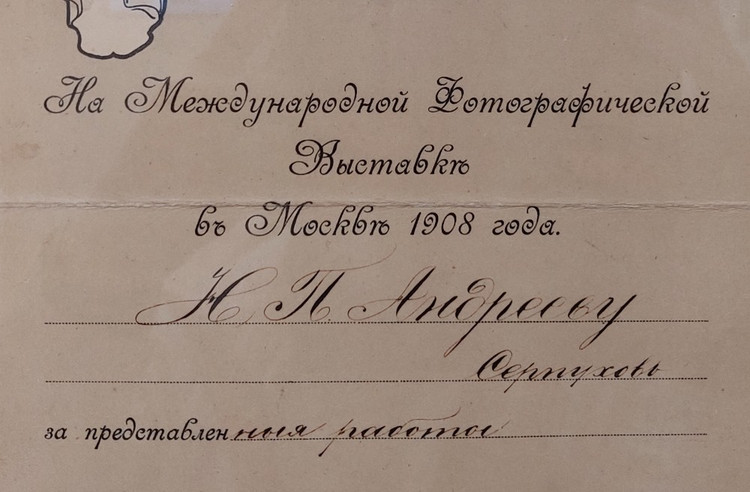 На Международной Фотографической
Выставкѣ
въ Москвѣ 1908 года.
Н. П. Андрееву
Серпуховъ
за представленныя работы